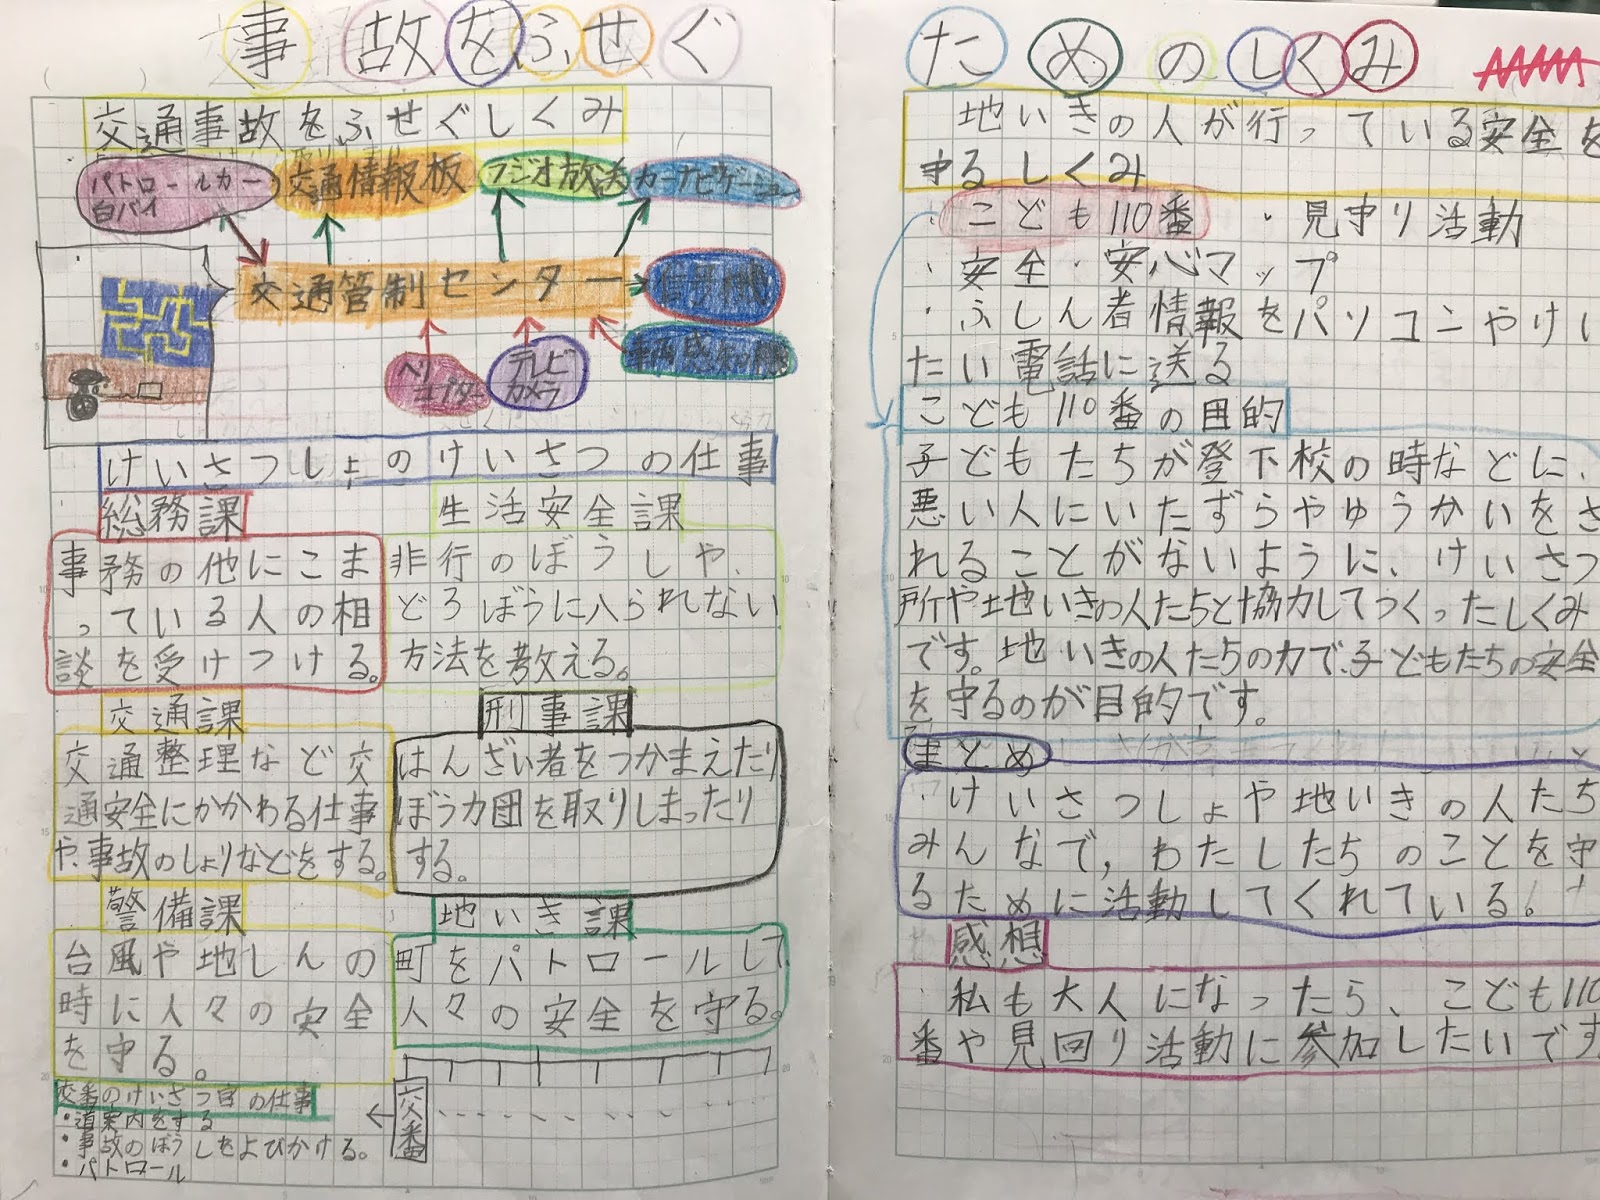 事故をふせぐ
交通事故をふせぐしくみ
パトロールカー
白バイ
交通情報板
ラジオ放送
カーナビゲーション
交通管制センター
信号機
ヘリ
コプター
テレビ
カメラ
車両感知機
けいさつしょのけいさつの仕事
総務課
事務の他にこま
っている人の相
談を受けつける。
生活安全課
非行のぼうしや、
どろぼうに入られない
方法を教える。
交通課
交通整理など交
通安全にかかわる仕事
や、事故のしょりなどをする。
刑事課
はんざい者をつかまえたり
ぼう力団を取りしまったり
する。
警備課
台風や地しんの
時に人々の安全
を守る。
地いき課
町をパトロールして
人々の安全を守る。
交番
交番のけいさつ官の仕事
・道案内をする
・事故のぼうしをよびかける。
・パトロール
ためのしくみ
地いきの人が行っている安全を
守るしくみ
・こども110番 ・見守り活動
・安全・安心マップ
・ふしん者情報をパソコンやけい
たい電話に送る
こども110番の目的
子どもたちが登下校の時などに、
悪い人にいたずらやゆうかいをさ
れることがないように、けいさつ
所や地いきの人たちと協力してつくったしくみ
です。地いきの人たちの力で、子どもたちの安全
を守るのが目的です。
まとめ
・けいさつしょや地いきの人たち
みんなで,わたしたちのことを守
るために活動してくれている。
感想
・私も大人になったら、こども110
番や見回り活動に参加したいです